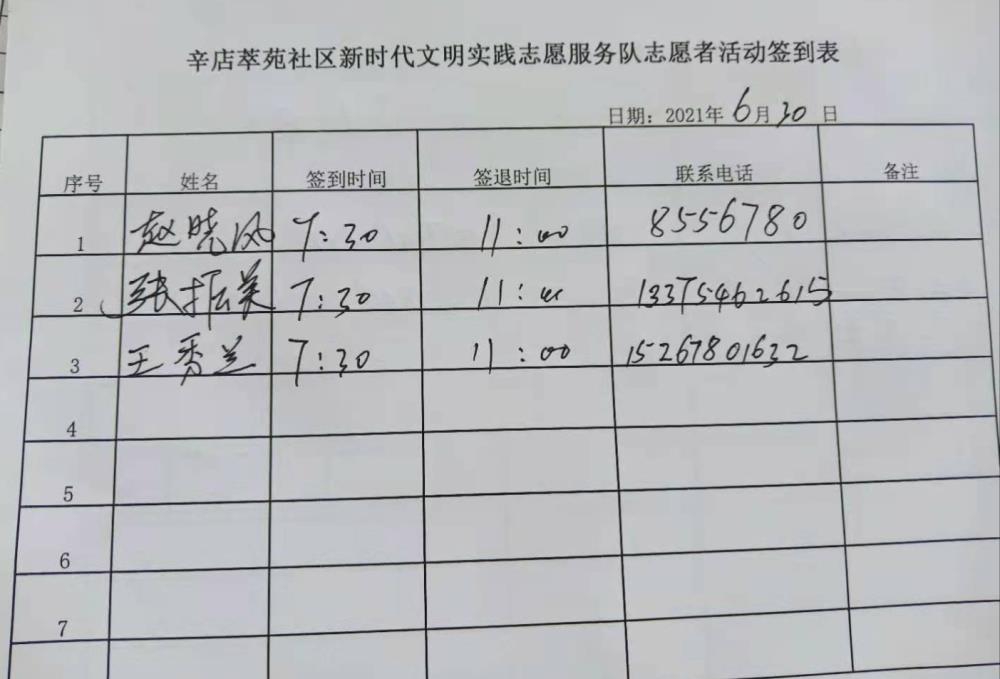 辛店萃苑社区新时代文明实践志愿服务队志愿者活动签到表
日期：2021年 6月30 日
序号 姓名 签到时间 签退时间 联系电话 备注
1 赵晓风 7:30 11:00 8556780
2 张振美 7:30 11:00 13375462615
3 王秀兰 7:30 11:00 15267801632
4
5
6
7